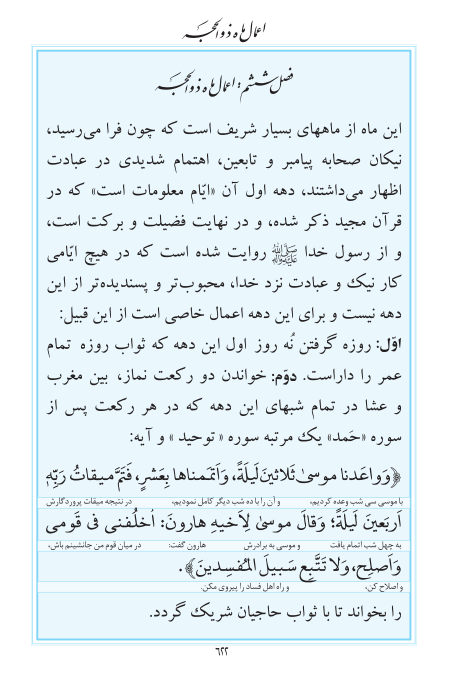 اعمال ماه ذوالحجه
فصل ششم: اعمال ماه ذوالحجه
این ماه از ماههای بسیار شریف است که چون فرا می‌رسید،
نیکان صحابه پیامبر و تابعین، اهتمام شدیدی در عبادت
اظهار می‌داشتند، دهه اول آن «ایّام معلومات است» که در
قرآن مجید ذکر شده، و در نهایت فضیلت و برکت است،
و از رسول خدا ﷺ روایت شده است که در هیچ ایّامی
کار نیک و عبادت نزد خدا، محبوب‌تر و پسندیده‌تر از این
دهه نیست و برای این دهه اعمال خاصی است از این قبیل:
اوّل: روزه گرفتن نُه روز اول این دهه که ثواب روزه تمام
عمر را داراست. دوّم: خواندن دو رکعت نماز، بین مغرب
و عشا در تمام شبهای این دهه که در هر رکعت پس از
سوره «حَمد» یک مرتبه سوره « توحید » و آیه:
﴿وَواعَدنا موسیٰ ثَلاثینَ لَیلَةً، وَاَتمَمناها بِعَشرٍ، فَتَمَّ میقاتُ رَبِّهِ
با موسی سی شب وعده کردیم، و آن را با ده شب دیگر کامل نمودیم، در نتیجه میقات پروردگارش
اَربَعینَ لَیلَةً؛ وَقالَ موسیٰ لِاَخیهِ هارونَ: اُخلُفنی فی قَومی
به چهل شب اتمام یافت و موسی به برادرش هارون گفت: در میان قوم من جانشینم باش،
وَاَصلِح، وَلا تَتَّبِع سَبیلَ المُفسِدینَ﴾.
و اصلاح کن، و راه اهل فساد را پیروی مکن.
را بخواند تا با ثواب حاجیان شریک گردد.
۶۲۲